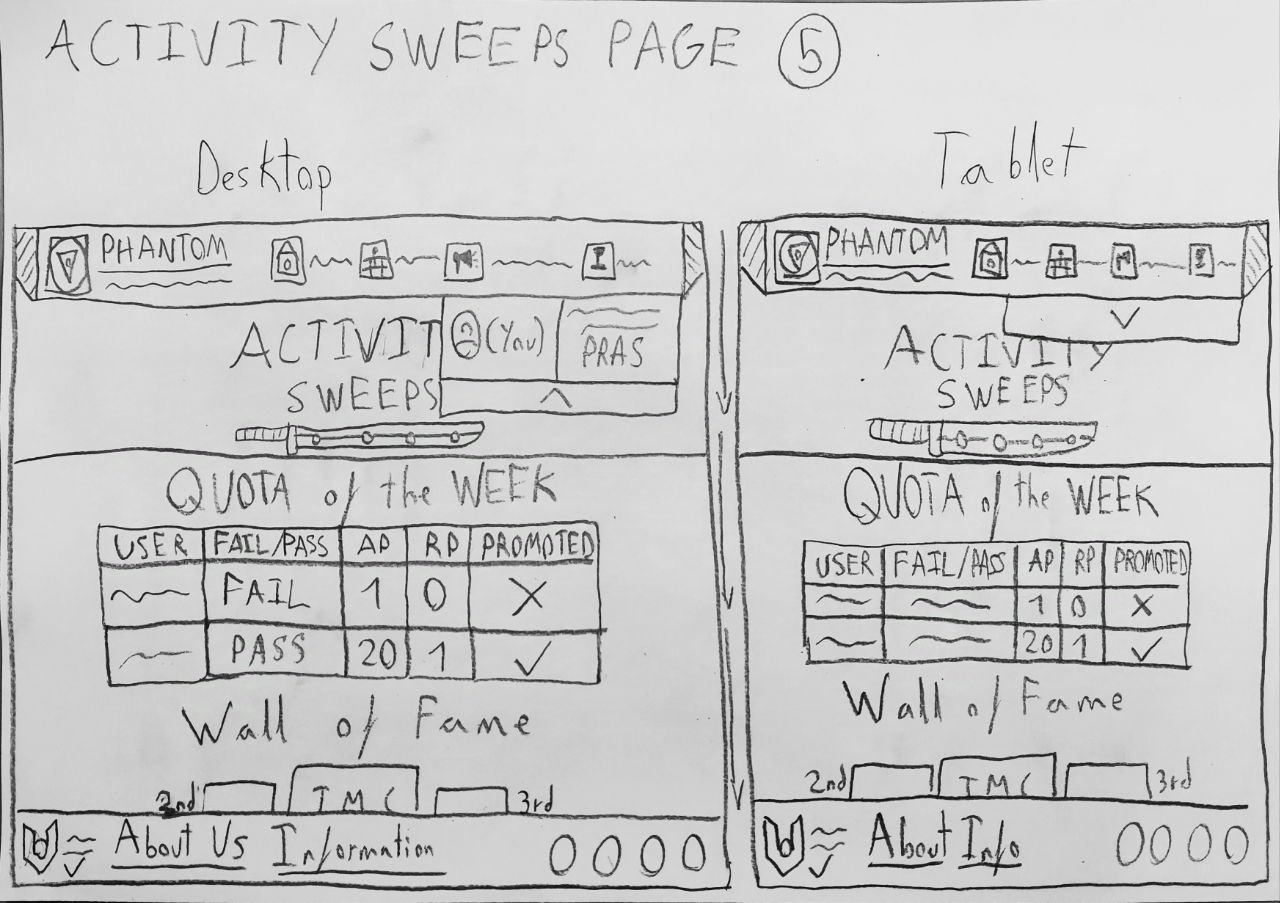 ACTIVITY SWEEPS PAGE 5
Desktop
PHANTOM
ACTIVIT
SWEEPS
(You)
PRAS
QUOTA of the WEEK
USER FAIL/PASS AP RP PROMOTED
FAIL 1 0 X
PASS 20 1 ✓
Wall of Fame
2nd TMC 3rd
About Us Information
Tablet
PHANTOM
ACTIVITY
SWEEPS
QUOTA of the WEEK
USER FAIL/PASS AP RP PROMOTED
1 0 X
20 1 ✓
Wall of Fame
2nd TMC 3rd
About Info